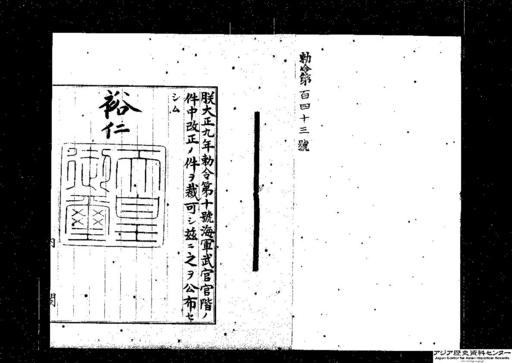 勅令第百四十三號
朕大正九年勅令第十號海軍武官官階ノ
件中改正ノ件ヲ裁可シ茲ニ之ヲ公布セ
シム
裕仁
天皇
御璽
内閣
アジア歴史資料センター
Japan Center for Asian Historical Records